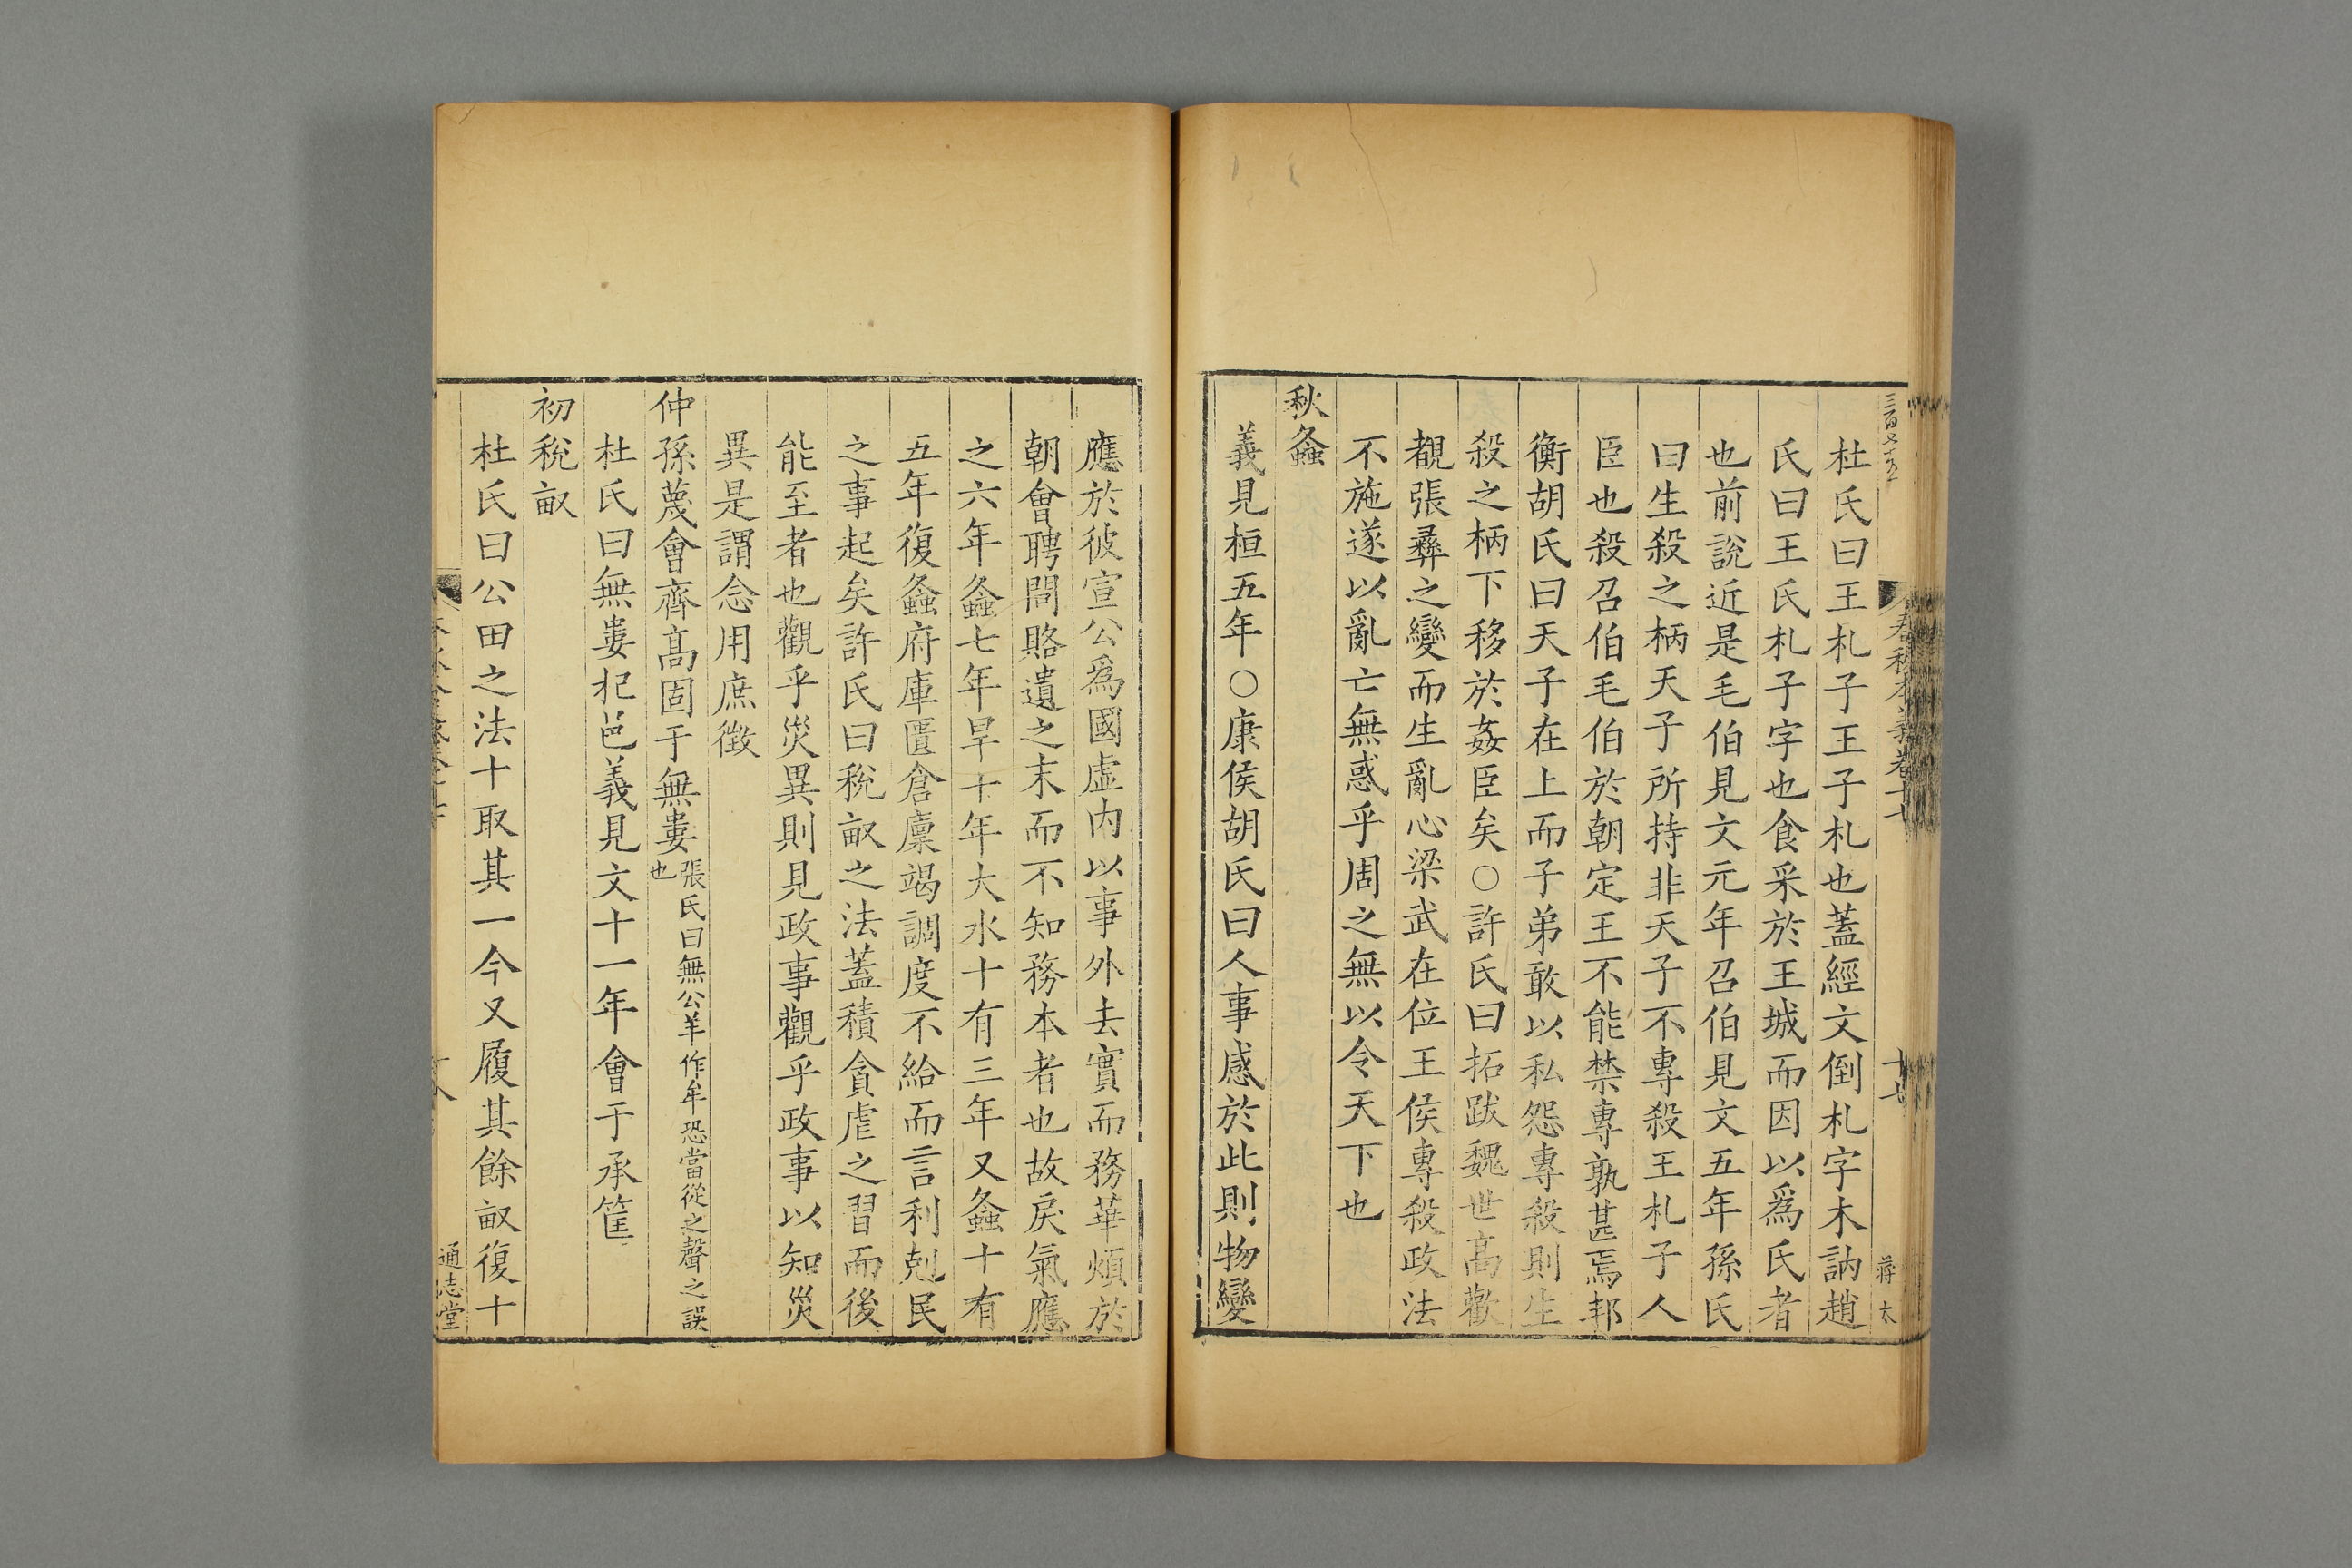 春秋本義卷十七
十七
蔣太
杜氏曰王札子王子札也蓋經文倒札字木訥趙
氏曰王氏札子字也食采於王城而因以爲氏者
也前說近是毛伯見文元年召伯見文五年孫氏
曰生殺之柄天子所持非天子不專殺王札子人
臣也殺召伯毛伯於朝定王不能禁專孰甚焉邦
衡胡氏曰天子在上而子弟敢以私怨專殺則生
殺之柄下移於姦臣矣○許氏曰拓跋魏世高歡
覩張彝之變而生亂心梁武在位王侯專殺政法
不施遂以亂亡無惑乎周之無以令天下也
秋螽
義見桓五年○康侯胡氏曰人事感於此則物變
應於彼宣公爲國虛内以事外去實而務華煩於
朝會聘問賂遺之末而不知務本者也故戾氣應
之六年螽七年旱十年大水十有三年又螽十有
五年復螽府庫匱倉廩竭調度不給而言利剋民
之事起矣許氏曰稅畝之法蓋積貪虐之習而後
能至者也觀乎災異則見政事觀乎政事以知災
異是謂念用庶徵
仲孫蔑會齊高固于無婁張氏曰無公羊作牟恐當從之聲之誤也
杜氏曰無婁杞邑義見文十一年會于承筐
初稅畝
杜氏曰公田之法十取其一今又履其餘畝復十
通志堂